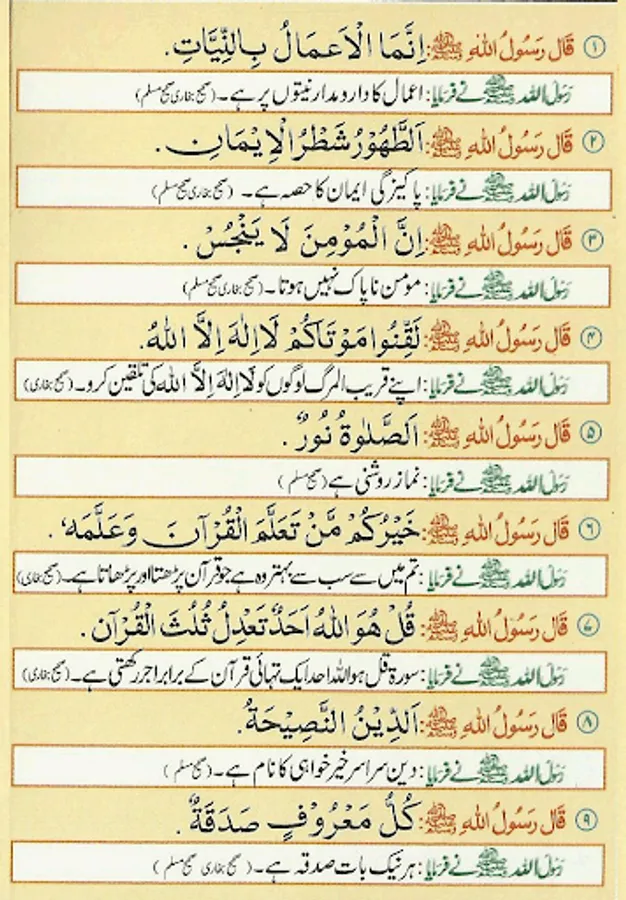 ۱ قَالَ رَسُولُ اللهِ ﷺ: اِنَّمَا الْاَعمَالُ بِالنِّیَّاتِ.
رَسُولُ اللہ ﷺ نے فرمایا: اعمال کا دارومدار نیتوں پر ہے۔ (صحیح بخاری صحیح مسلم)
۲ قَالَ رَسُولُ اللهِ ﷺ: اَلطَّهُوْرُ شَطْرُ الْاِیْمَانِ.
رَسُولُ اللہ ﷺ نے فرمایا: پاکیزگی ایمان کا حصہ ہے۔ (صحیح بخاری صحیح مسلم)
۳ قَالَ رَسُولُ اللهِ ﷺ: اِنَّ الْمُؤْمِنَ لَا یَنْجُسْ.
رَسُولُ اللہ ﷺ نے فرمایا: مومن ناپاک نہیں ہوتا۔ (صحیح بخاری صحیح مسلم)
۴ قَالَ رَسُولُ اللهِ ﷺ: لَقِّنُوا مَوْتَاکُمْ لَا اِلٰهَ اِلَّا اللهُ.
رَسُولُ اللہ ﷺ نے فرمایا: اپنے قریب المرگ لوگوں کو لَا اِلٰهَ اِلَّا الله کی تلقین کرو۔ (صحیح بخاری)
۵ قَالَ رَسُولُ اللهِ ﷺ: اَلصَّلٰوةُ نُورٌ.
رَسُولُ اللہ ﷺ نے فرمایا: نماز روشنی ہے (صحیح مسلم)
۶ قَالَ رَسُولُ اللهِ ﷺ: خَیْرُکُمْ مَّنْ تَعَلَّمَ الْقُرْآنَ وَعَلَّمَهٗ.
رَسُولُ اللہ ﷺ نے فرمایا: تم میں سے سب سے بہتر وہ ہے جو قرآن پڑھتا اور پڑھاتا ہے۔ (صحیح بخاری)
۷ قَالَ رَسُولُ اللهِ ﷺ: قُلْ هُوَ اللهُ اَحَدٌ تَعْدِلُ ثُلُثَ الْقُرْآنِ.
رَسُولُ اللہ ﷺ نے فرمایا: سورۃ قل ہو اللہ احد ایک تہائی قرآن کے برابر اجر رکھتی ہے۔ (صحیح بخاری)
۸ قَالَ رَسُولُ اللهِ ﷺ: اَلدِّیْنُ النَّصِیْحَةُ.
رَسُولُ اللہ ﷺ نے فرمایا: دین سراسر خیر خواہی کا نام ہے۔ (صحیح مسلم)
۹ قَالَ رَسُولُ اللهِ ﷺ: کُلُّ مَعْرُوْفٍ صَدَقَةٌ.
رَسُولُ اللہ ﷺ نے فرمایا: ہر نیک بات صدقہ ہے۔ (صحیح بخاری صحیح مسلم)